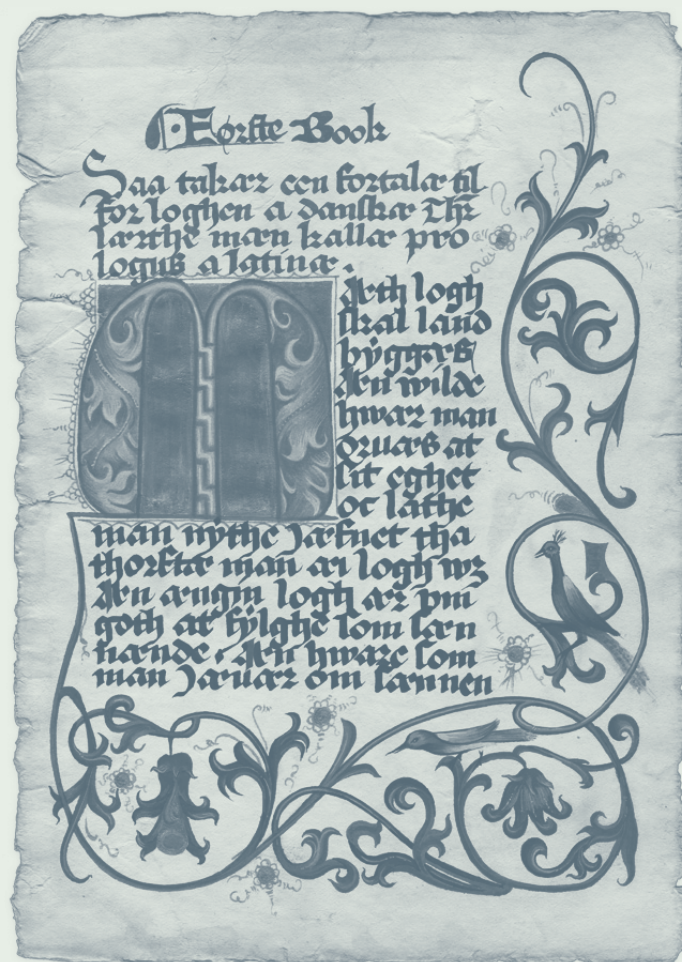 Førstæ Book
Saa takær een fortalæ til
for loghen a danskæ Thr
lærthe mæn kallæ pro
logus a latinæ.
Mæth logh
skal land
byggæs
Æn wilde
hwær man
oruæs at
sit eghet
oc lathe
man nythe Jæfnet tha
thorftæ man æi logh wz
Æn ængin logh ær æm
goth at fylghe som sæn
nænde. Æn hware som
man Jæuær om sænnen